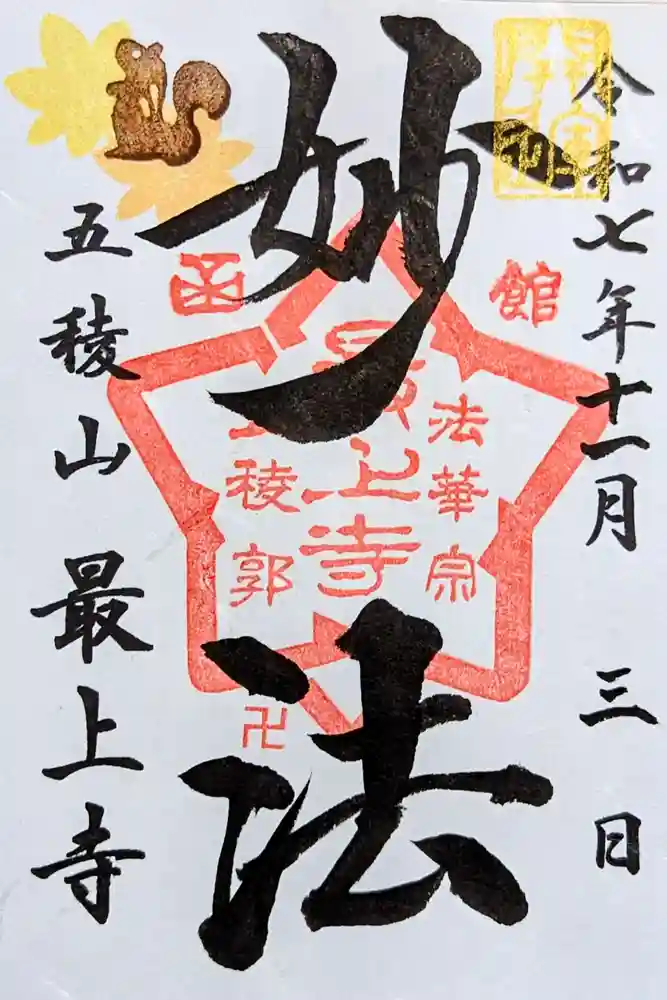 令和七年十一月 三 日
妙法
五稜山 最上寺
函
館
法華宗
最上寺
五稜郭
卍